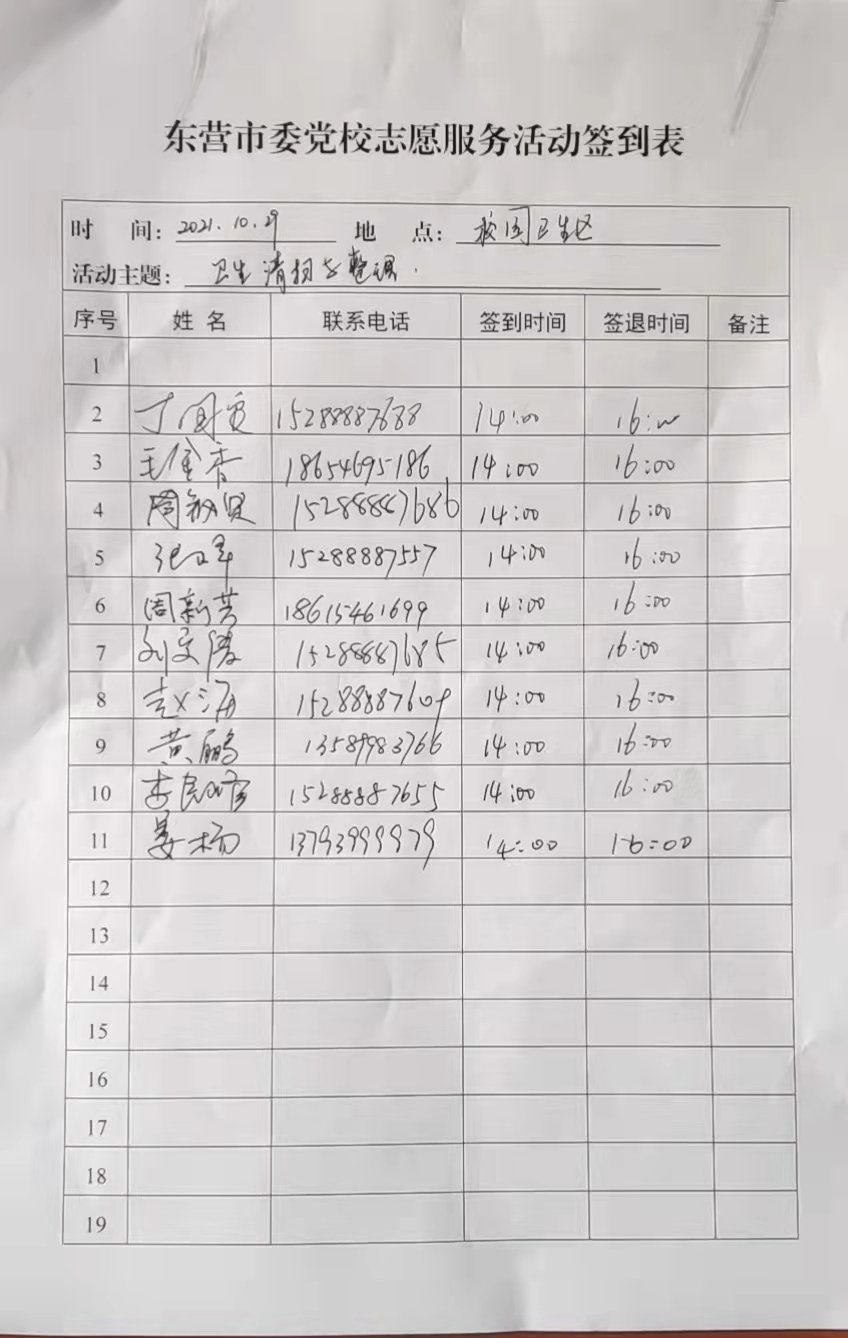 东营市委党校志愿服务活动签到表
时 间: 2021.10.29 地 点: 校园卫生区
活动主题: 卫生清扫与整理.
序号 姓名 联系电话 签到时间 签退时间 备注
1
2 丁国 15288887688 14:00 16:00
3 王金香 18654695186 14:00 16:00
4 周敏贤 15288887686 14:00 16:00
5 15288887557 14:00 16:00
6 周新芳 18615461699 14:00 16:00
7 刘文涛 15288887685 14:00 16:00
8 赵海 15288887609 14:00 16:00
9 黄鹏 13589983766 14:00 16:00
10 李 15288887655 14:00 16:00
11 姜杨 13793999979 14:00 16:00
12
13
14
15
16
17
18
19